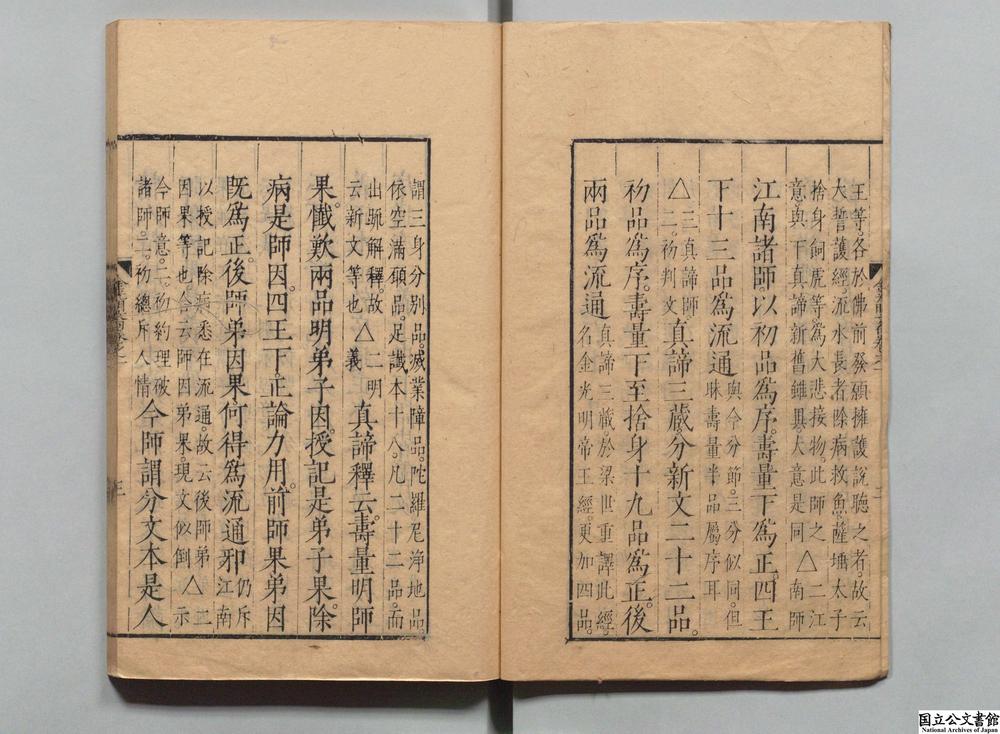 王等各於佛前發願擁護說聽之者故云
大誓護經流水長者除病救魚薩埵太子
捨身飼虎等為大悲接物此師之△二江
意與下真諦新舊雖異大意是同△南師
江南諸師以初品為序壽量下為正四王
下十三品為流通與今分節三分似同但
昧壽量半品屬序耳
△三真諦師
二初判文真諦三藏分新文二十二品
初品為序壽量下至捨身十九品為正後
兩品為流通真諦三藏於梁世重譯此經
名金光明帝王經更加四品
謂三身分別品滅業障品陀羅尼淨地品
依空滿願品足讖本十八凡二十二品而
出疏解釋故△二明
云新文等也義真諦釋云壽量明師
果懺歎兩品明弟子因授記是弟子果除
病是師因四王下正論力用前師果弟因
既為正後師弟因果何得為流通邪仍斥
江南
以授記除病悉在流通故云後師弟△二
因果等也合云師因弟果現文似倒△示
今師意二初約理破
諸師二初總斥人情今師謂分文本是人
国立公文書館
National Archives of Japan